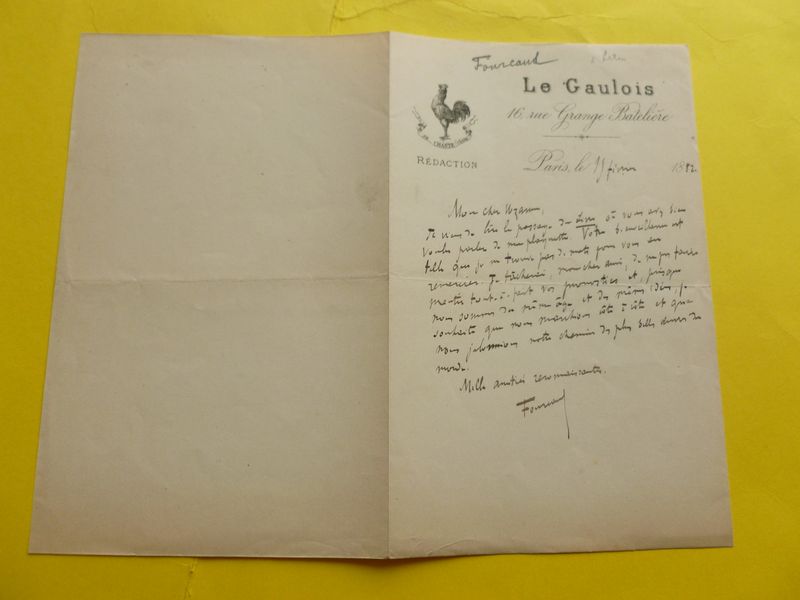 Fourcaud
Le Gaulois
16, rue Grange-Batelière
RÉDACTION
Paris, le 11 février 1882
Mon cher Uzanne,
Je viens de lire le passage du livre où vous avez bien
voulu parler de ma plaquette. Votre bienveillance est
telle que je ne trouve pas de mots pour vous en
remercier. Je tâcherai, mon cher ami, de ne pas faire
mentir tout-à-fait vos pronostics et, puisque
nous sommes du même âge et des mêmes idées, je
souhaite que nous marchions côte à côte et que
nous jalonnions notre chemin des plus belles choses du
monde.
Mille amitiés reconnaissantes.
Fourcaud